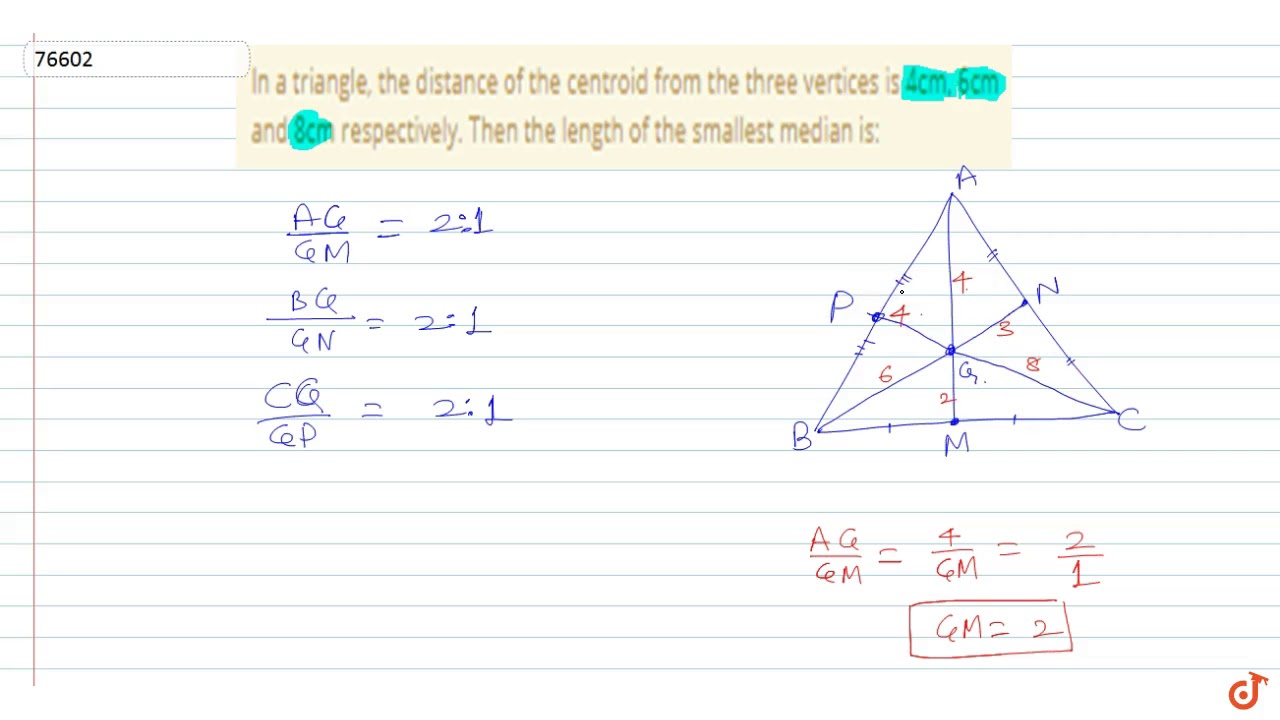 76602
In a triangle, the distance of the centroid from the three vertices is 4cm, 6cm
and 8cm respectively. Then the length of the smallest median is:
A
AG/GM = 2:1
BG/GN = 2:1
CG/GP = 2:1
4
P 4 N
3
6 G 8
2
B M C
AG/GM = 4/GM = 2/1
GM = 2